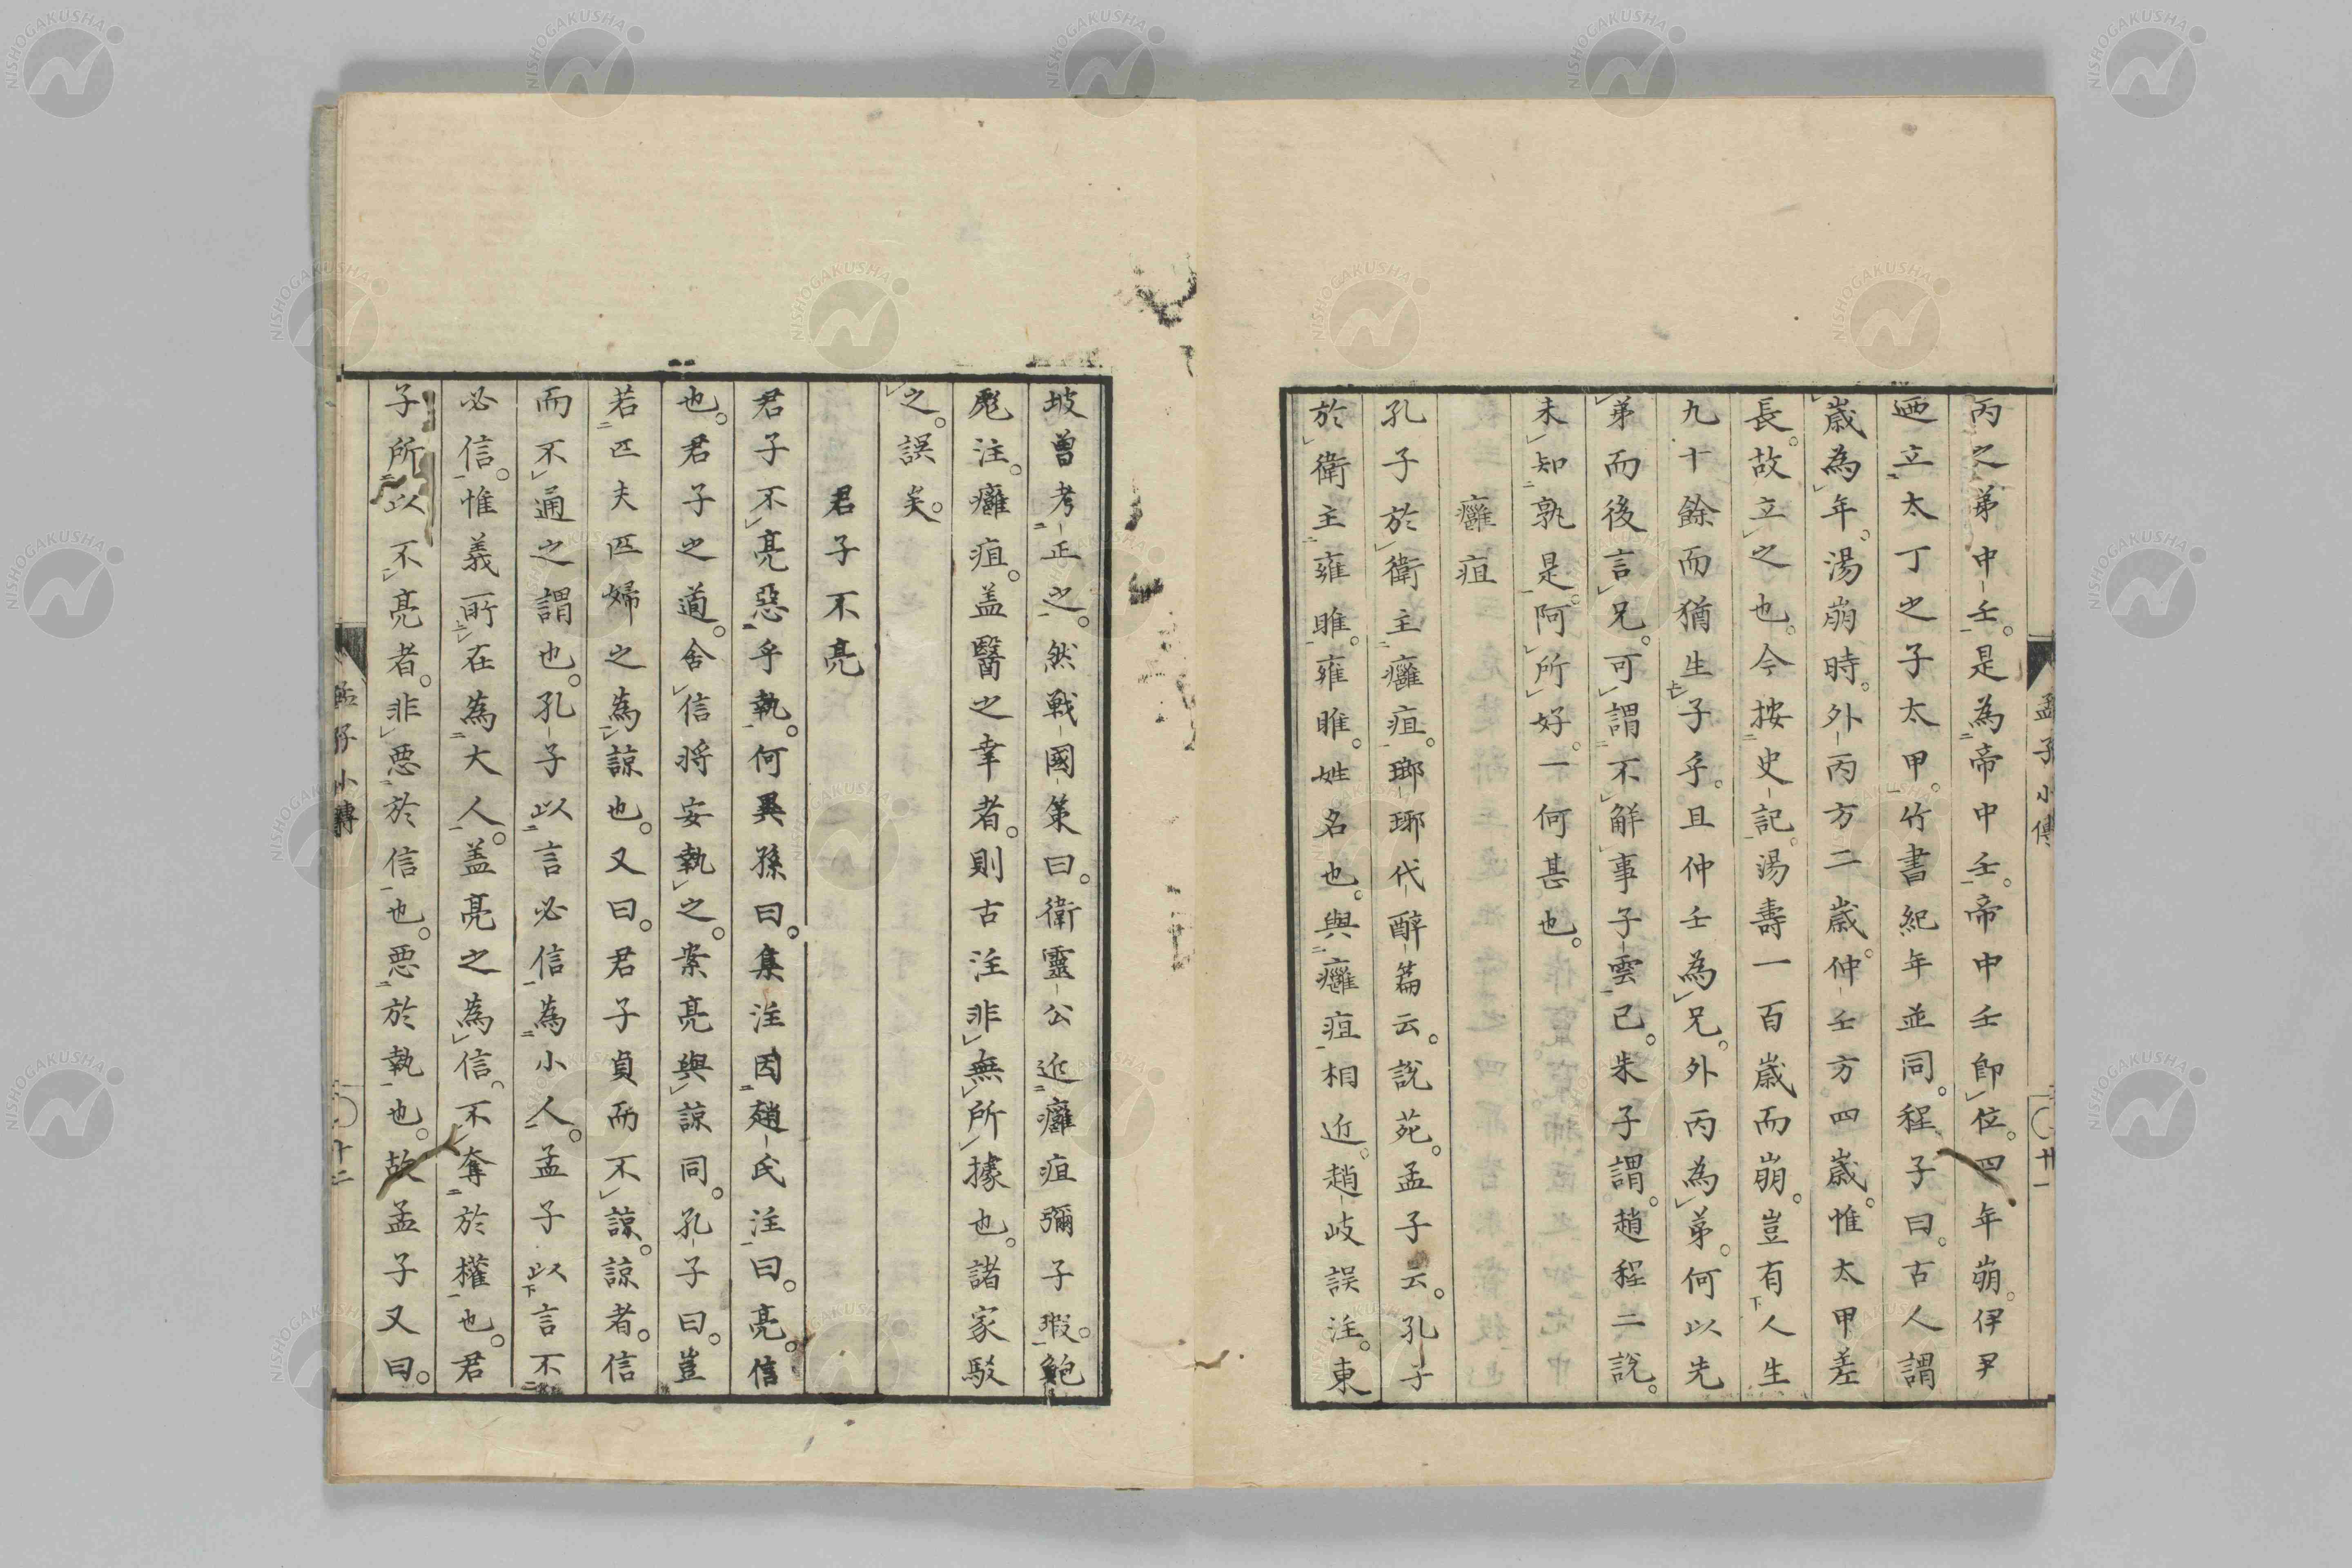 孟子小傳
廿一
丙之弟中壬。是為帝中壬。帝中壬即位。四年崩。伊尹
廼立太丁之子太甲。竹書紀年並同。程子曰。古人謂
歳為年。湯崩時。外丙方二歳。仲壬方四歳。惟太甲差
長。故立之也。今按史記。湯壽一百歳而崩。豈有人生
九十餘而猶生子乎。且仲壬為兄。外丙為弟。何以先
弟而後言兄。可謂不解事子雲已。朱子謂。趙程二說。
未知孰是。阿所好。一何甚也。
癰疽
孔子於衛主癰疽。瑯琊代醉篇云。說苑。孟子云。孔子
於衛主雍雎。雍雎。姓名也。與癰疽相近。趙岐誤注。東
坡曽考正之。然戰國策曰。衛靈公近癰疽彌子瑕。鮑
彪注。癰疽。盖醫之幸者。則古注非無所據也。諸家駁
之。誤矣。
君子不亮
君子不亮惡乎執。何異孫曰。集注因趙氏注曰。亮。信
也。君子之道。舍信将安執之。案亮與諒同。孔子曰。豈
若匹夫匹婦之為諒也。又曰。君子貞而不諒。諒者。信
而不通之謂也。孔子以言必信為小人。孟子以言不
必信。惟義所在為大人。盖亮之為信。不奪於權也。君
子所以不亮者。非惡於信也。惡於執也。故孟子又曰。
孟子小傳
廿二
NISHOGAKUSHA